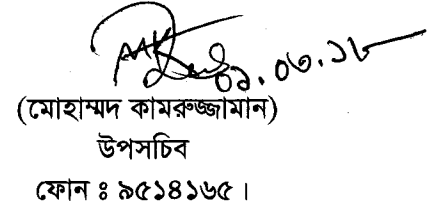 ০১.০৩.১৮
(মোহাম্মদ কামরুজ্জামান)
উপসচিব
ফোন ঃ ৯৫১৪১৬৫ ।